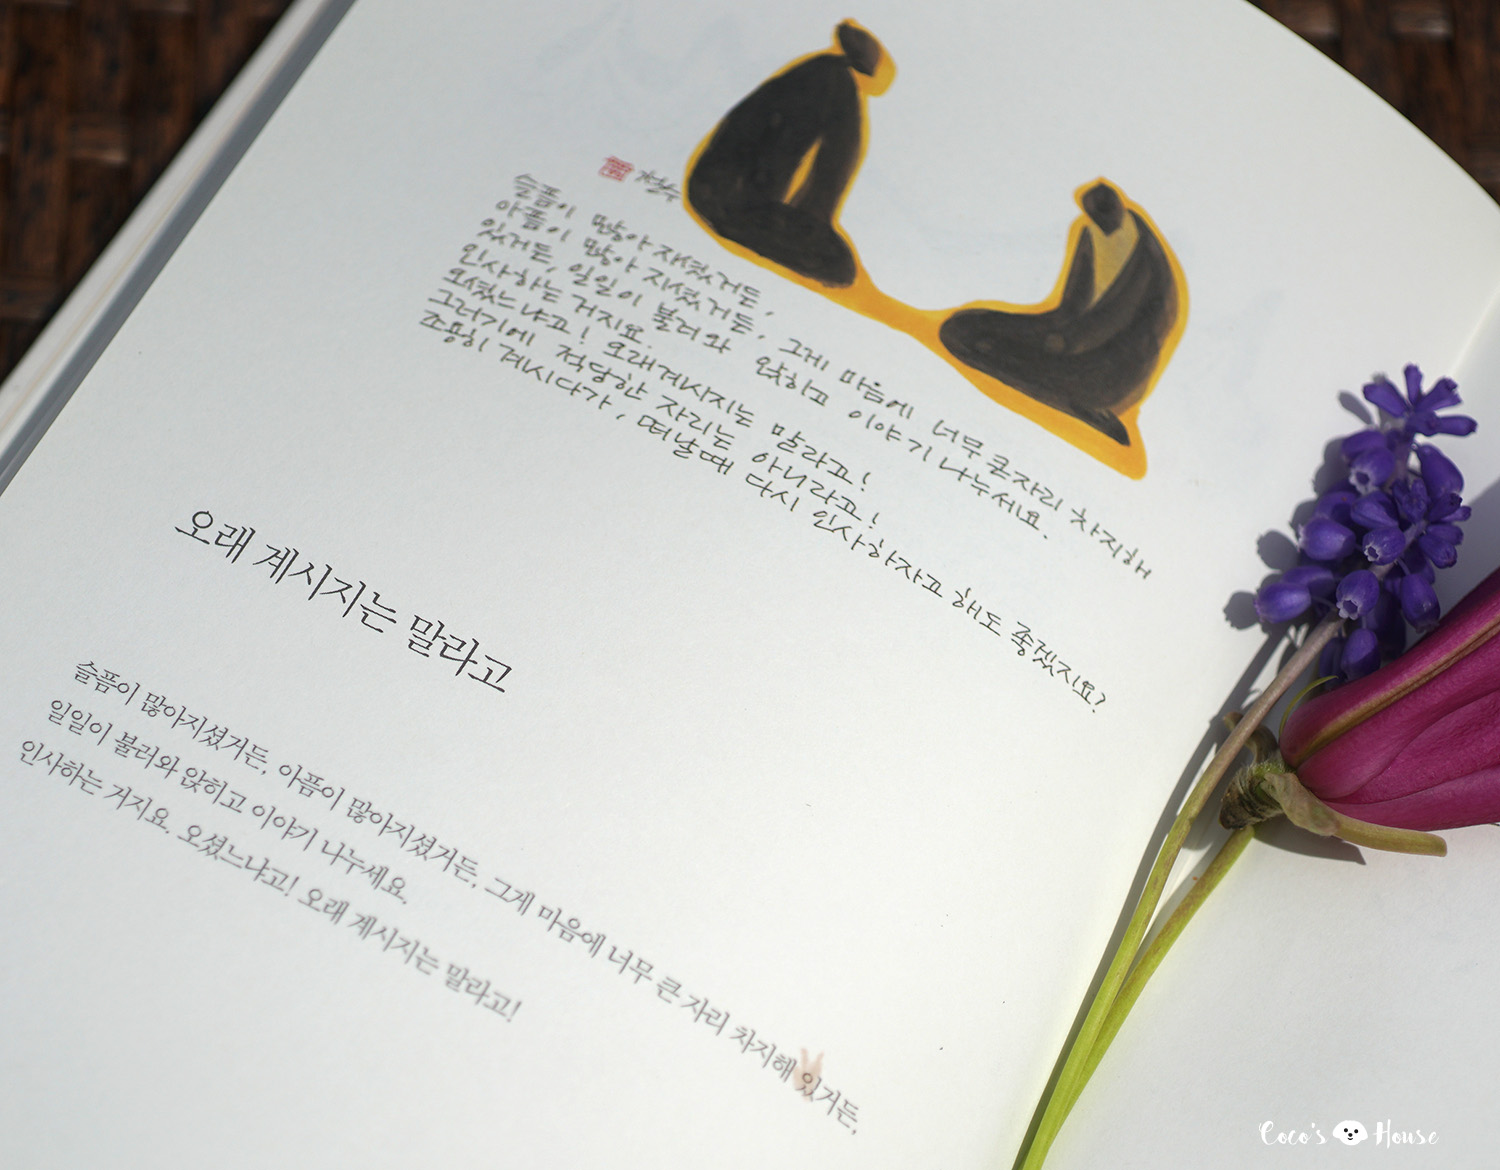 철수
슬픔이 많아 지셨거든,
아픔이 많아 지셨거든, 그게 마음에 너무 큰자리 차지해
있거든, 일일이 불러와 앉히고 이야기 나누세요.
인사하는 거지요.
오셨느냐고! 오래계시지는 말라고!
그러기에 적당한 자리는 아니라고!
조용히 계시다가, 떠날때 다시 인사하자고 해도 좋겠지요?
오래 계시지는 말라고
슬픔이 많아지셨거든, 아픔이 많아지셨거든, 그게 마음에 너무 큰 자리 차지해 있거든,
일일이 불러와 앉히고 이야기 나누세요.
인사하는 거지요. 오셨느냐고! 오래 계시지는 말라고!
Coco's House